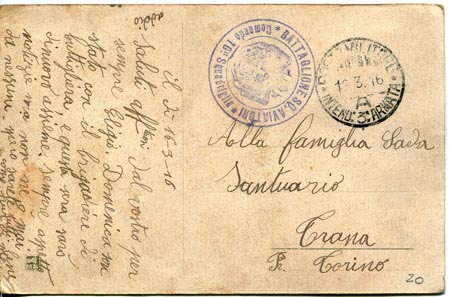 il dì 16-3-16
Saluti affmi dal vostro per
sempre Eligio. Domenica son
stato con il brigadiere di
battaglieri, e questa sera sarò
di nuovo assieme. Sempre aspetto
notizie ma non ne
da nessuna
addio
BATTAGLIONE SQ. AVIATORI
Comando 10ª Squadriglia
POSTA MILITARE
1 3.16
A
INTEND. 3ª ARMATA
Alla famiglia Sada
Santuario
Trana
Pr. Torino
20